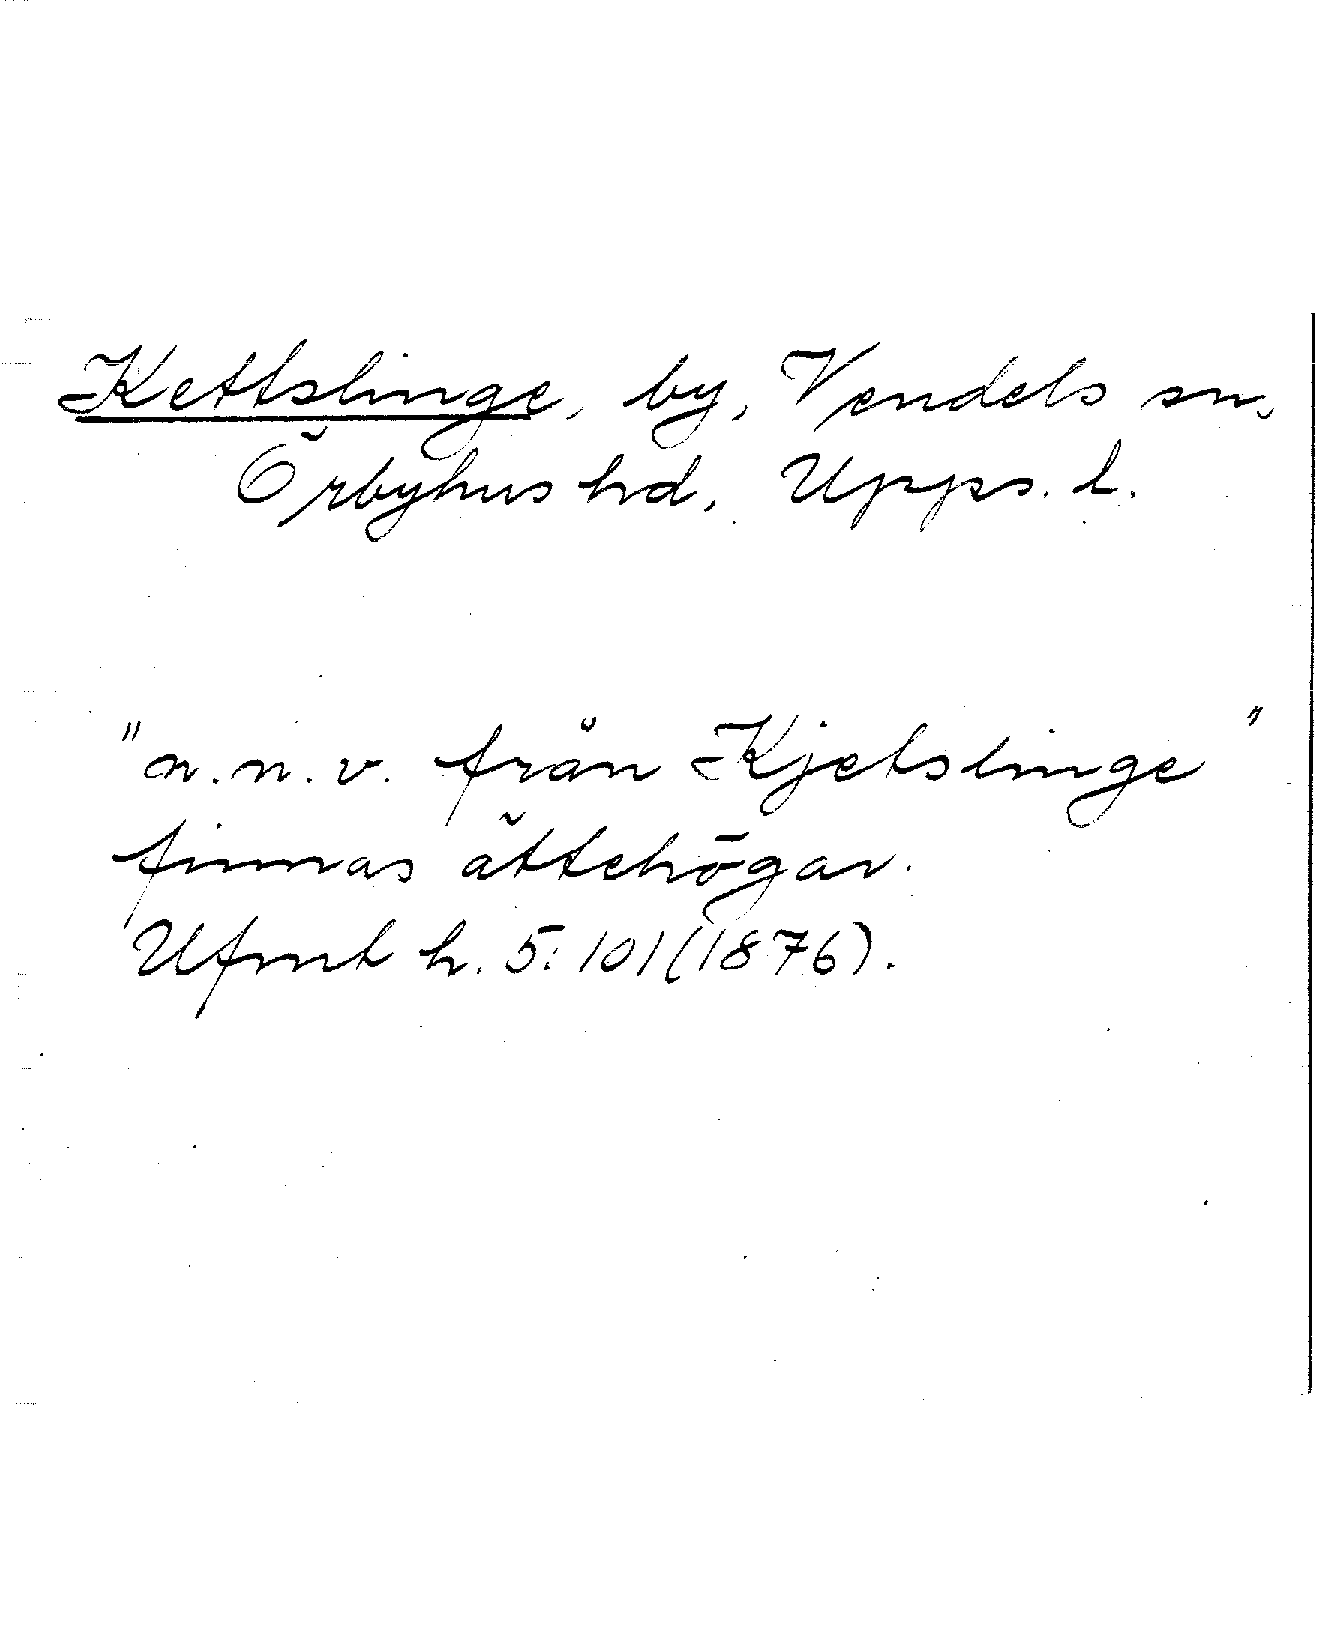 Kettslinge, by, Vendels sn,
Örbyhus hd, Upps. l.
"n.n.v. från Kjetslinge"
finnas ättehögar.
Ufmt h. 5: 101 (1876).